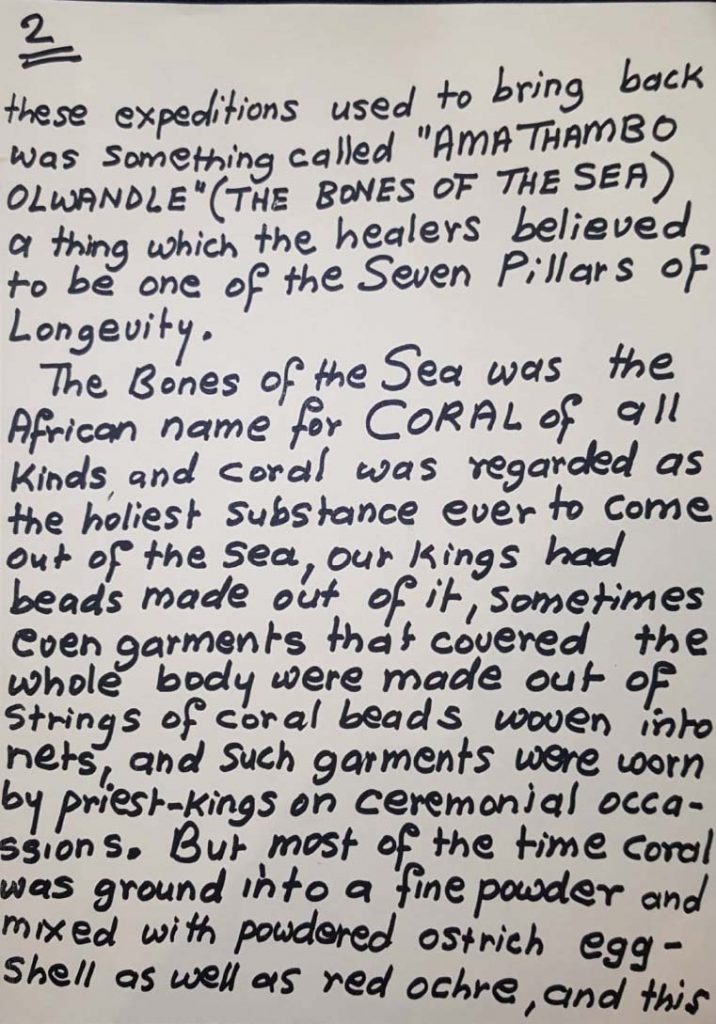 2
these expeditions used to bring back
was something called "AMATHAMBO
OLWANDLE" (THE BONES OF THE SEA)
a thing which the healers believed
to be one of the Seven Pillars of
Longevity.
The Bones of the Sea was the
African name for CORAL of all
Kinds, and coral was regarded as
the holiest substance ever to come
out of the sea, our kings had
beads made out of it, sometimes
even garments that covered the
whole body were made out of
strings of coral beads woven into
nets, and such garments were worn
by priest-kings on ceremonial occa-
ssions. But most of the time coral
was ground into a fine powder and
mixed with powdered ostrich egg-
shell as well as red ochre, and this